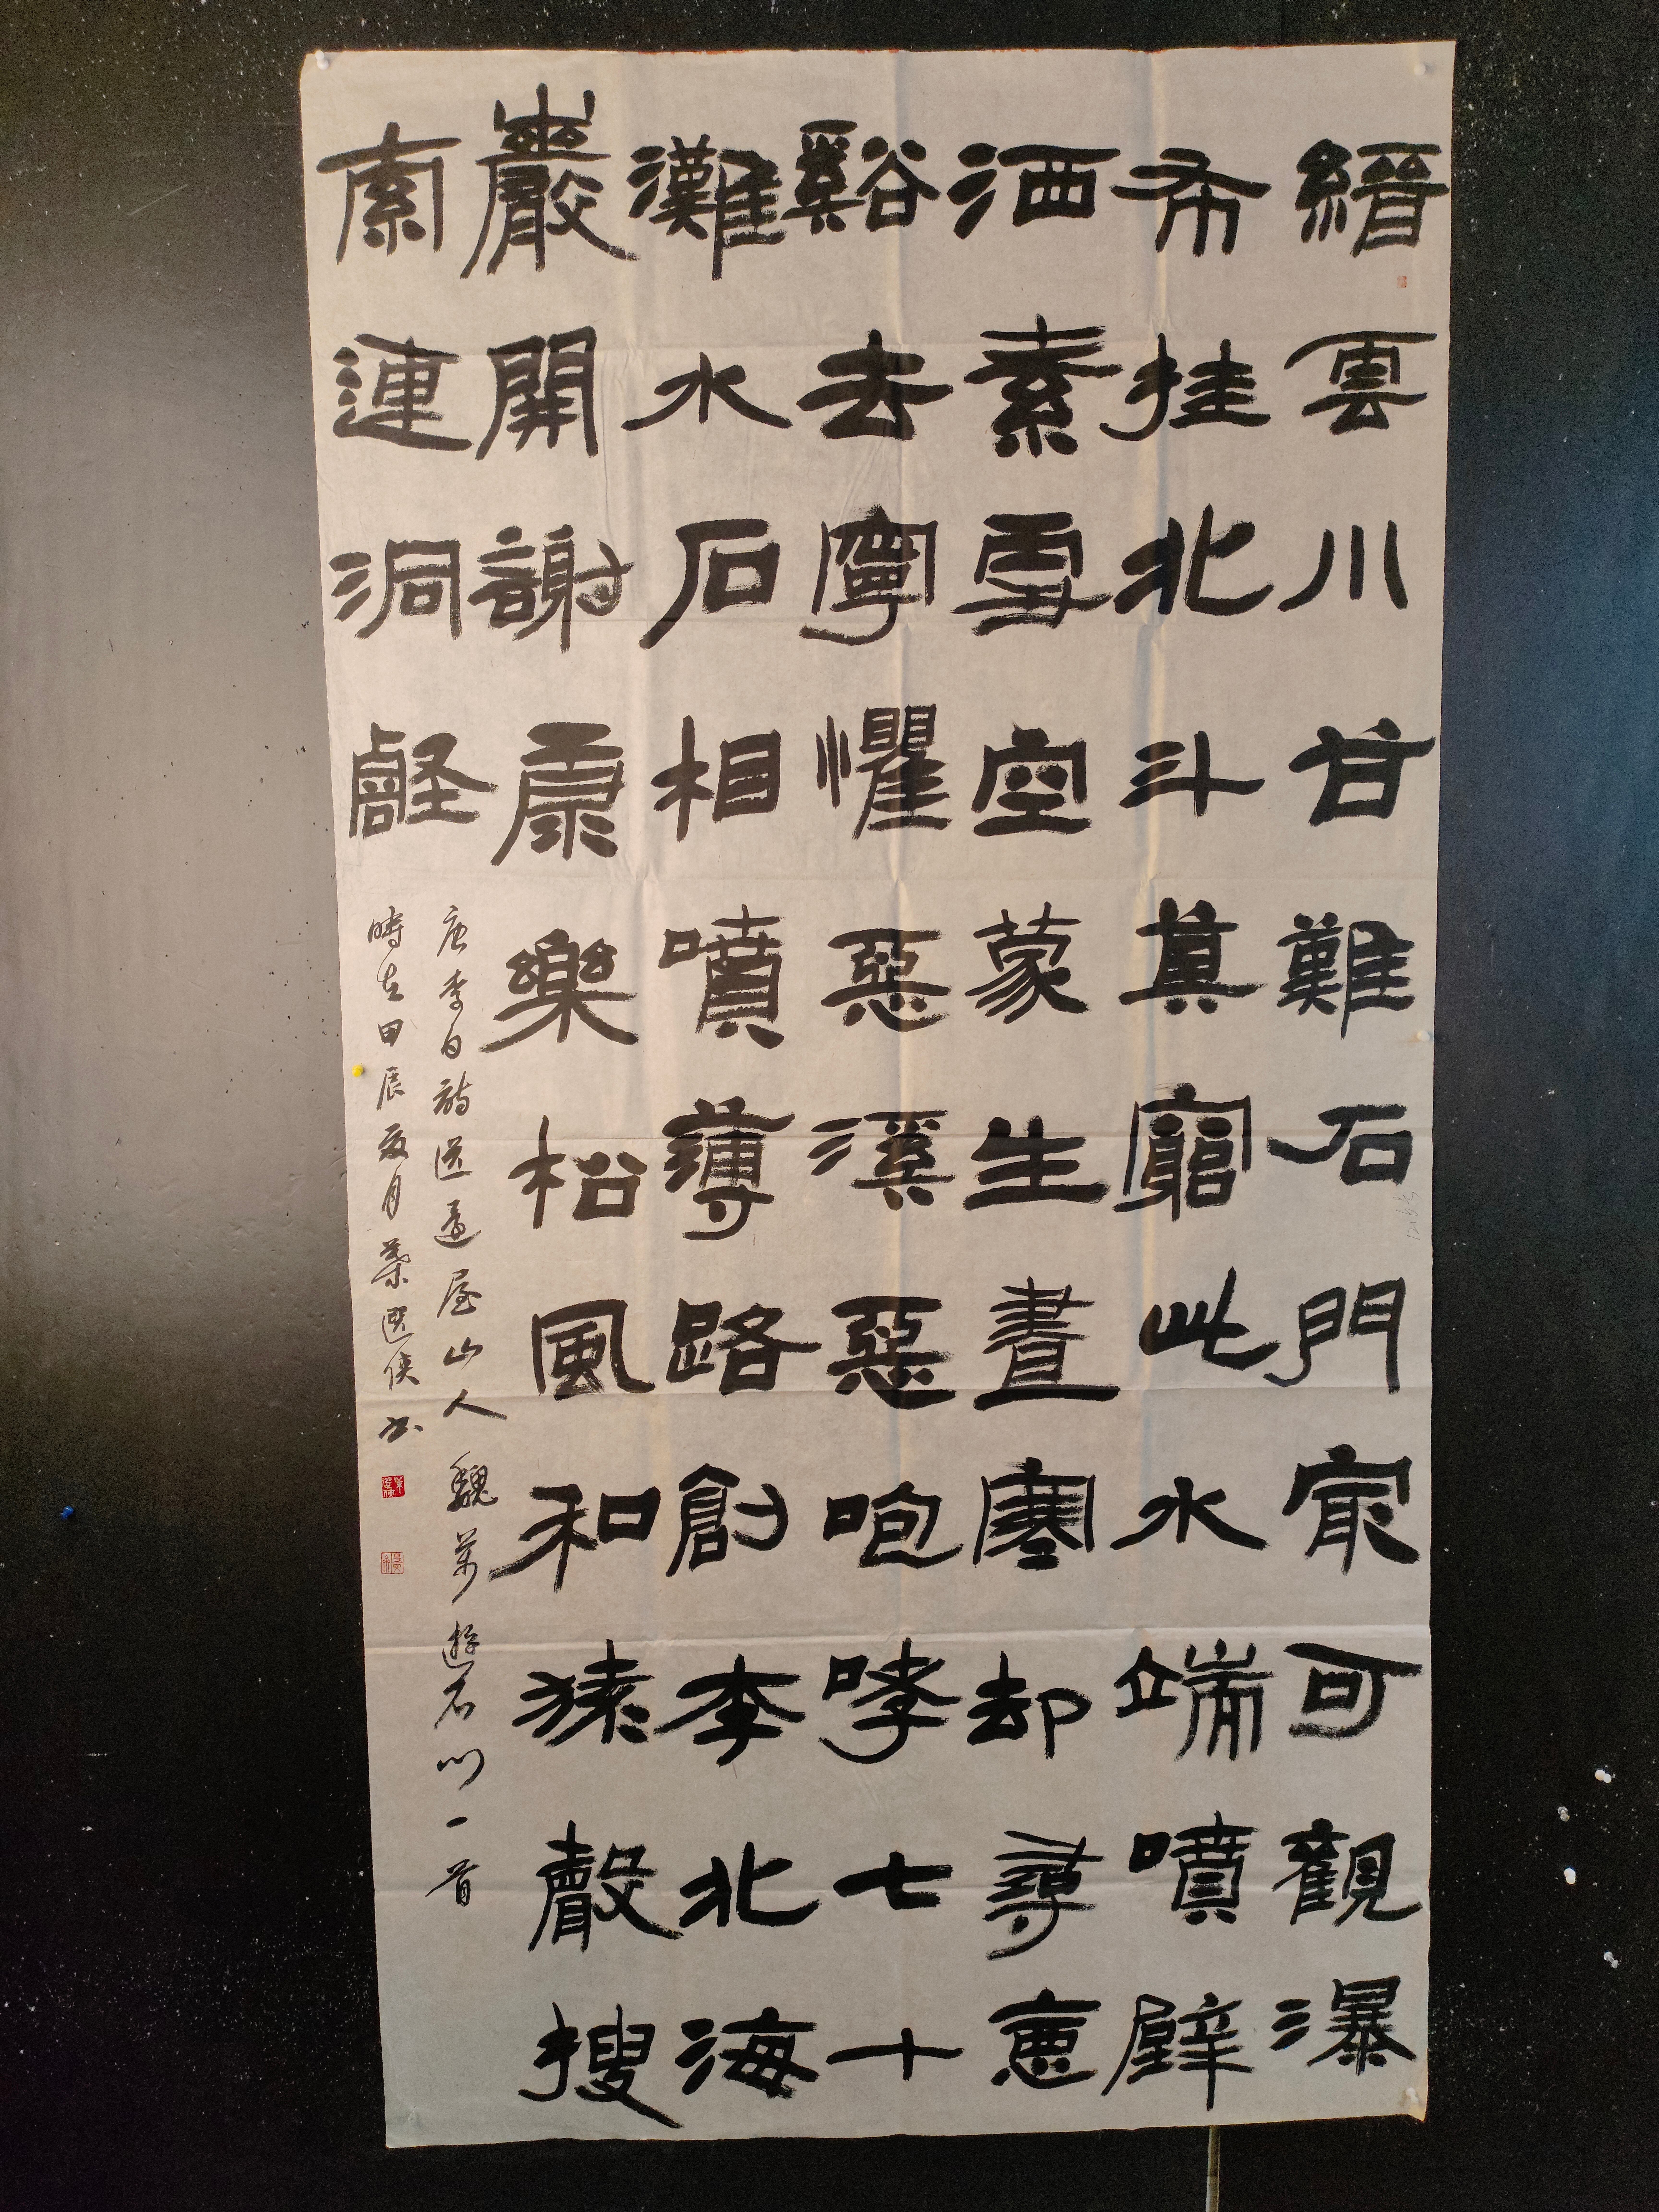 縉雲川甘難石門冣可觀瀑
布挂北斗莫窮此水端噴壁
洒素雪空蒙生晝寒却尋惡
谿去寧懼惡溪惡咆哮七十
灘水石相噴薄路創李北海
巖開謝康樂松風和猿聲搜
索連洞壑
唐李白詩送還屋山人魏萬遊石門一首
時在甲辰夏月葉選俠书